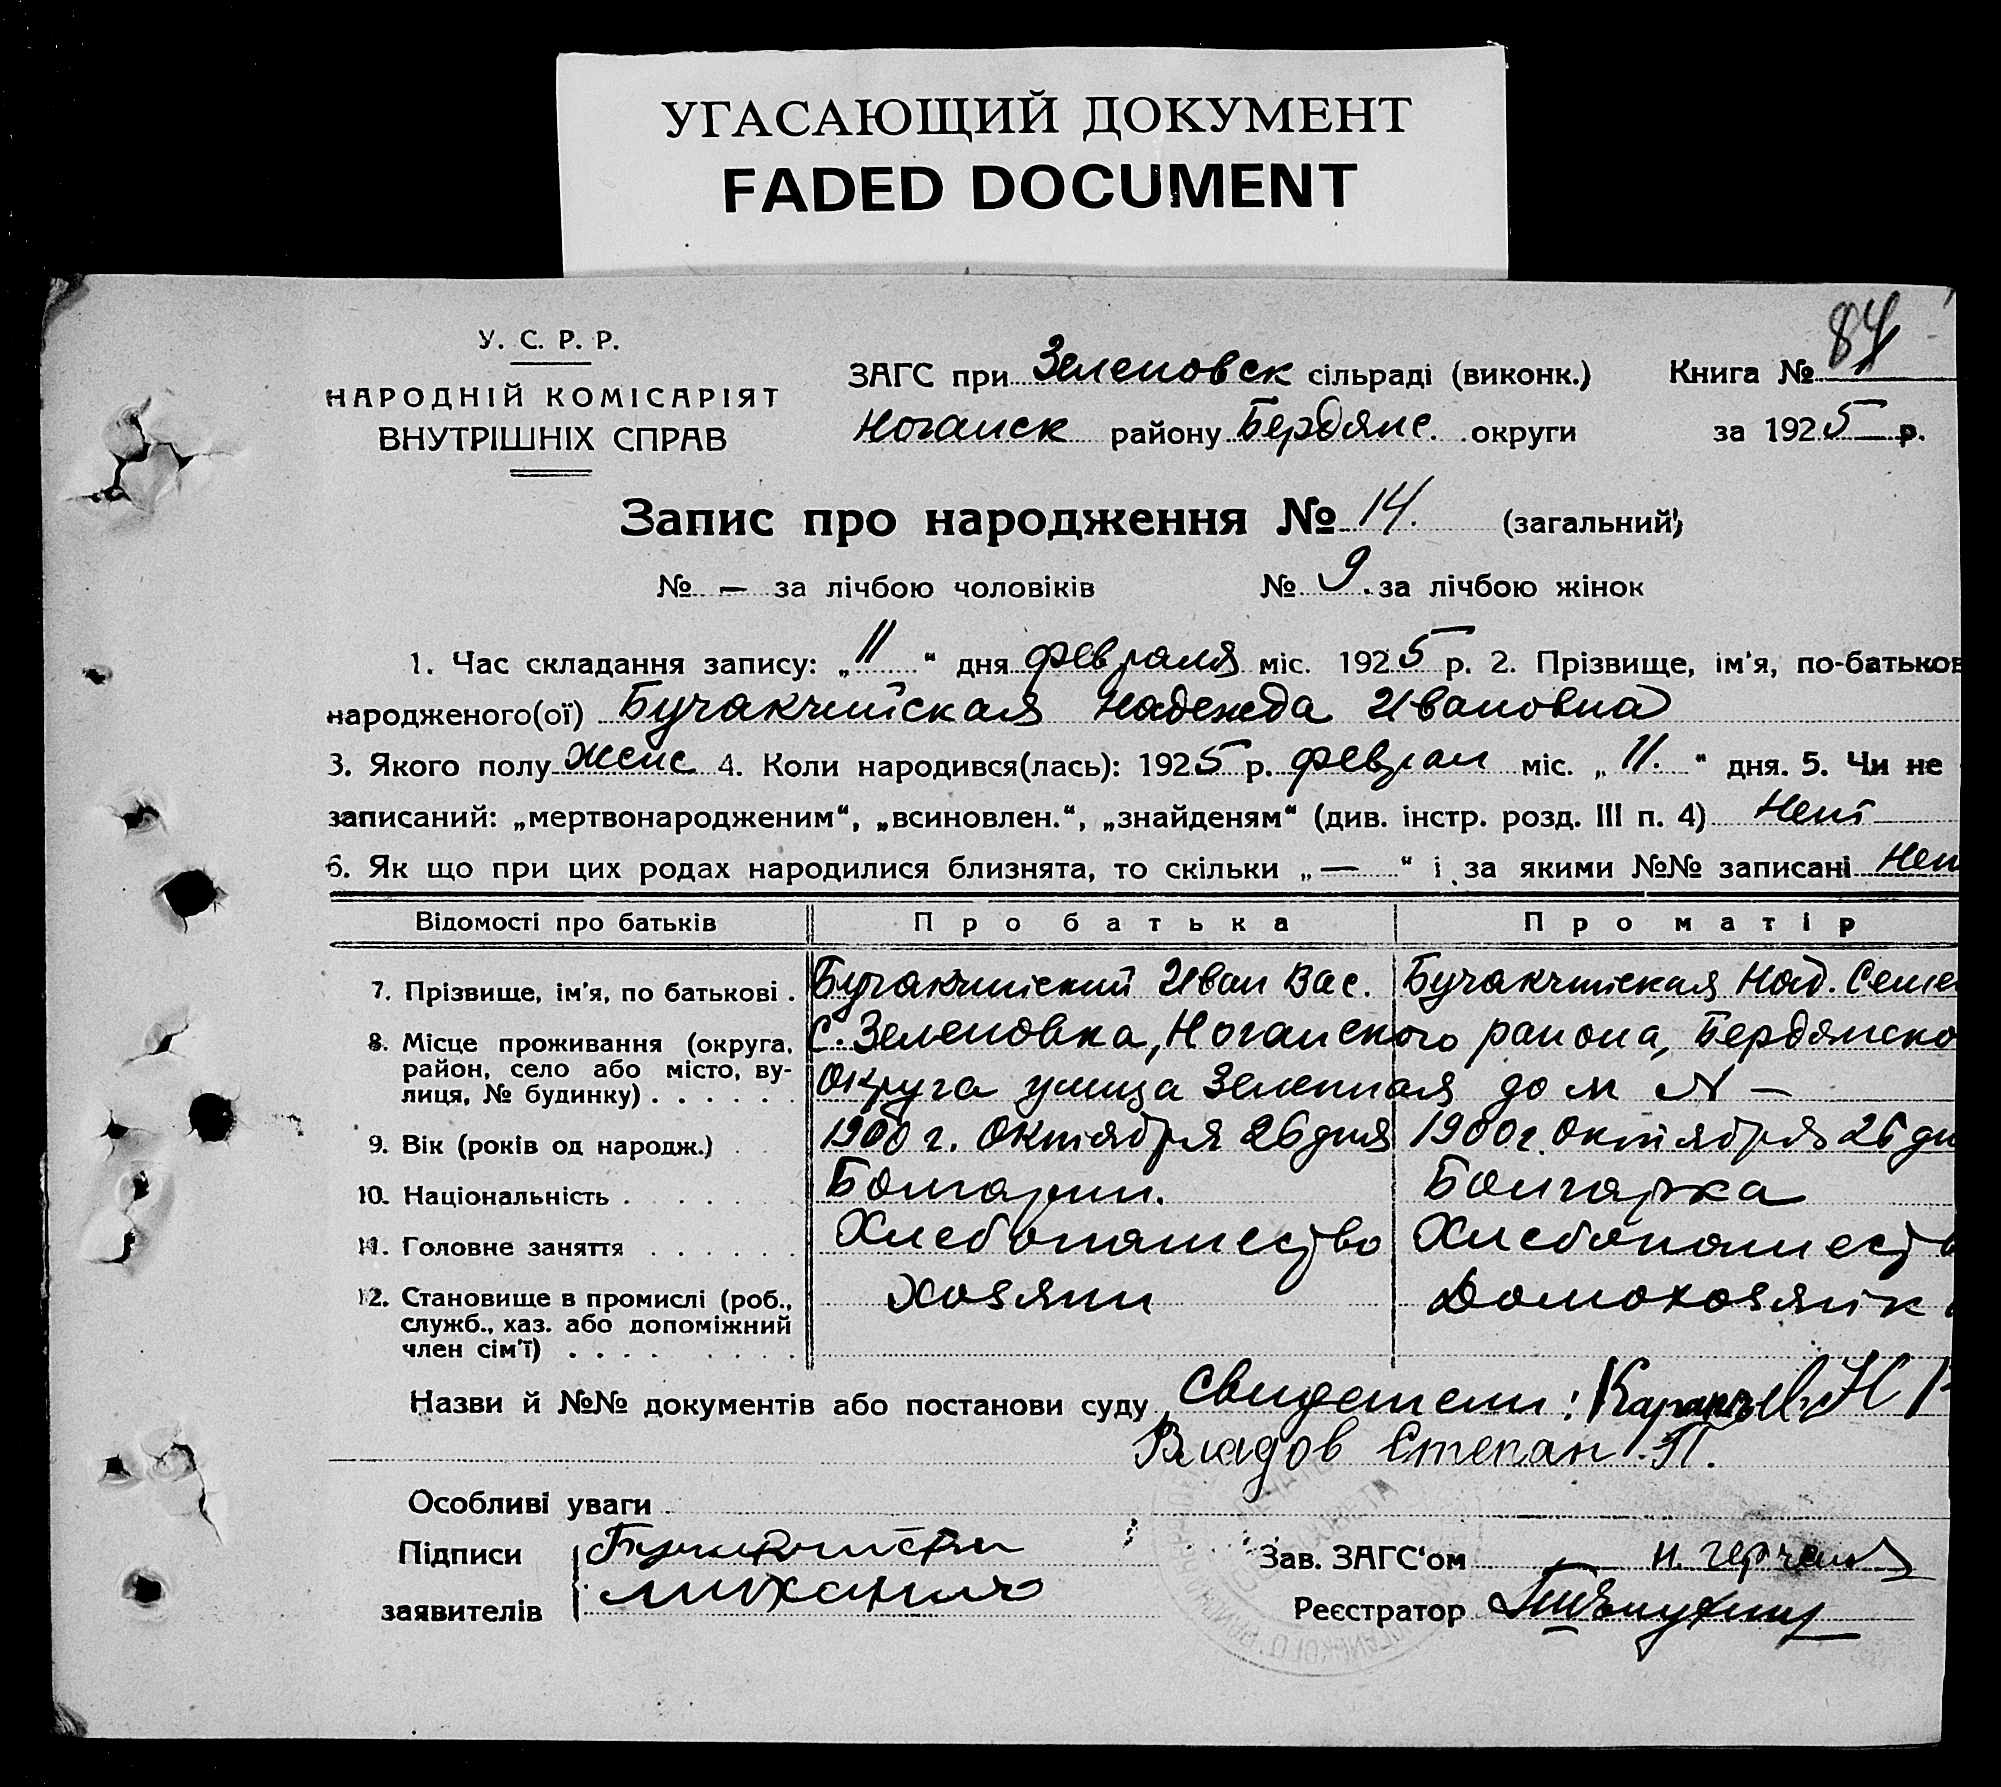 УГАСАЮЩИЙ ДОКУМЕНТ
FADED DOCUMENT
84
У. С. Р. Р.
НАРОДНІЙ КОМІСАРІЯТ
ВНУТРІШНІХ СПРАВ
ЗАГС при Зеленовск сільраді (виконк.) Книга №
Ногайск району Бердянс. округи за 1925 р.
Запис про народження № 14. (загальний)
№ — за лічбою чоловіків № 9. за лічбою жінок
1. Час складання запису: „11“ дня февраля міс. 1925 р. 2. Прізвище, ім'я, по-батьков
народженого(ої) Бучакчийская Надежда Ивановна
3. Якого полу женс 4. Коли народився(лась): 1925 р. феврал міс. „11.“ дня. 5. Чи не
записаний: „мертвонародженим“, „всиновлен.“, „знайденям“ (див. інстр. розд. III п. 4) Нет
6. Як що при цих родах народилися близнята, то скільки „—“ і за якими №№ записані Нет
Відомості про батьків Про батька Про матір
7. Прізвище, ім'я, по батькові . Бучакчийский Иван Вас. Бучакчийская Над. Семе
8. Місце проживання (округа, район, село або місто, вулиця, № будинку) . . . . . . С. Зеленовка, Ногайского района, Бердянско
Округа улица Зеленная дом № —
9. Вік (років од народж.) . . 1900 г. Октября 26 дня 1900 г. Октября 26 дн
10. Національність . . . . . Болгарин. Болгарка
11. Головне заняття . . . . . . Хлебопашество Хлебопашеств
12. Становище в промислі (роб., служб., хаз. або допоміжний член сім'ї) . . . . . . . . Хозяин Домохозяйк
Назви й №№ документів або постанови суду Свидетели:
Владов Степан П.
Особливі уваги
Підписи
заявителів
Зав. ЗАГС'ом
Реєстратор